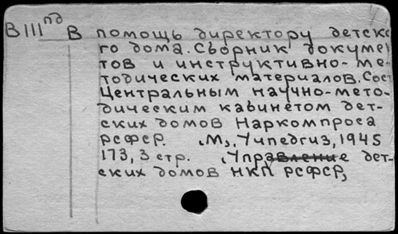 В III пд В помощь директору детско
го дома. Сборник докумен
тов и инструктивно-ме-
тодических материалов. Сост
Центральным научно-мето-
дическим кабинетом дет-
ских домов Наркомпроса
РСФСР. М., Учпедгиз, 1945
173, 3 стр. (Управление дет-
ских домов НКП РСФСР)